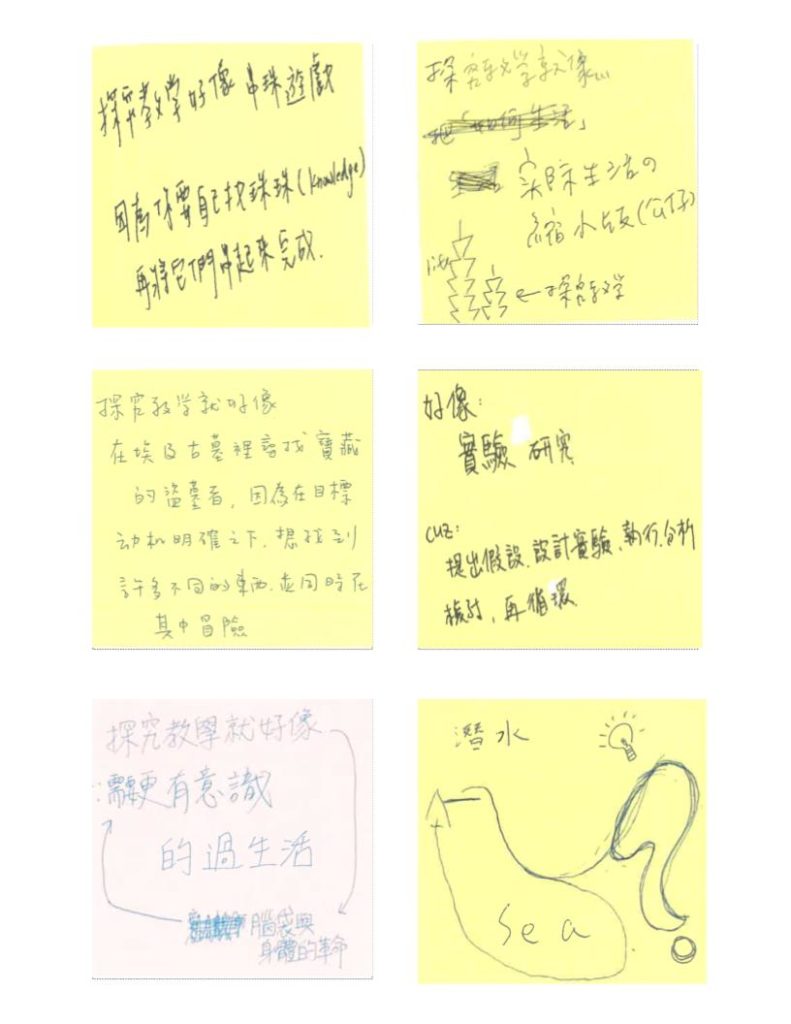 探究教學好像 串珠遊戲
因為你要自己找珠珠(knowledge)
再將它們串起來完成.
探究教學就像...
把「如何生活」
實際生活の
縮小版(公仔)
life
←探究教學
探究教學就好像
在埃及古墓裡尋找寶藏
的盜墓者，因為在目標
动机明確之下，想找到
許多不同的東西，並同時在
其中冒險
好像：
實驗 研究
cuz:
提出假設、設計實驗、執行、分析
檢討，再循環
探究教學就好像
需要更有意識
的過生活
腦袋與
身體的革命
潛水
Sea